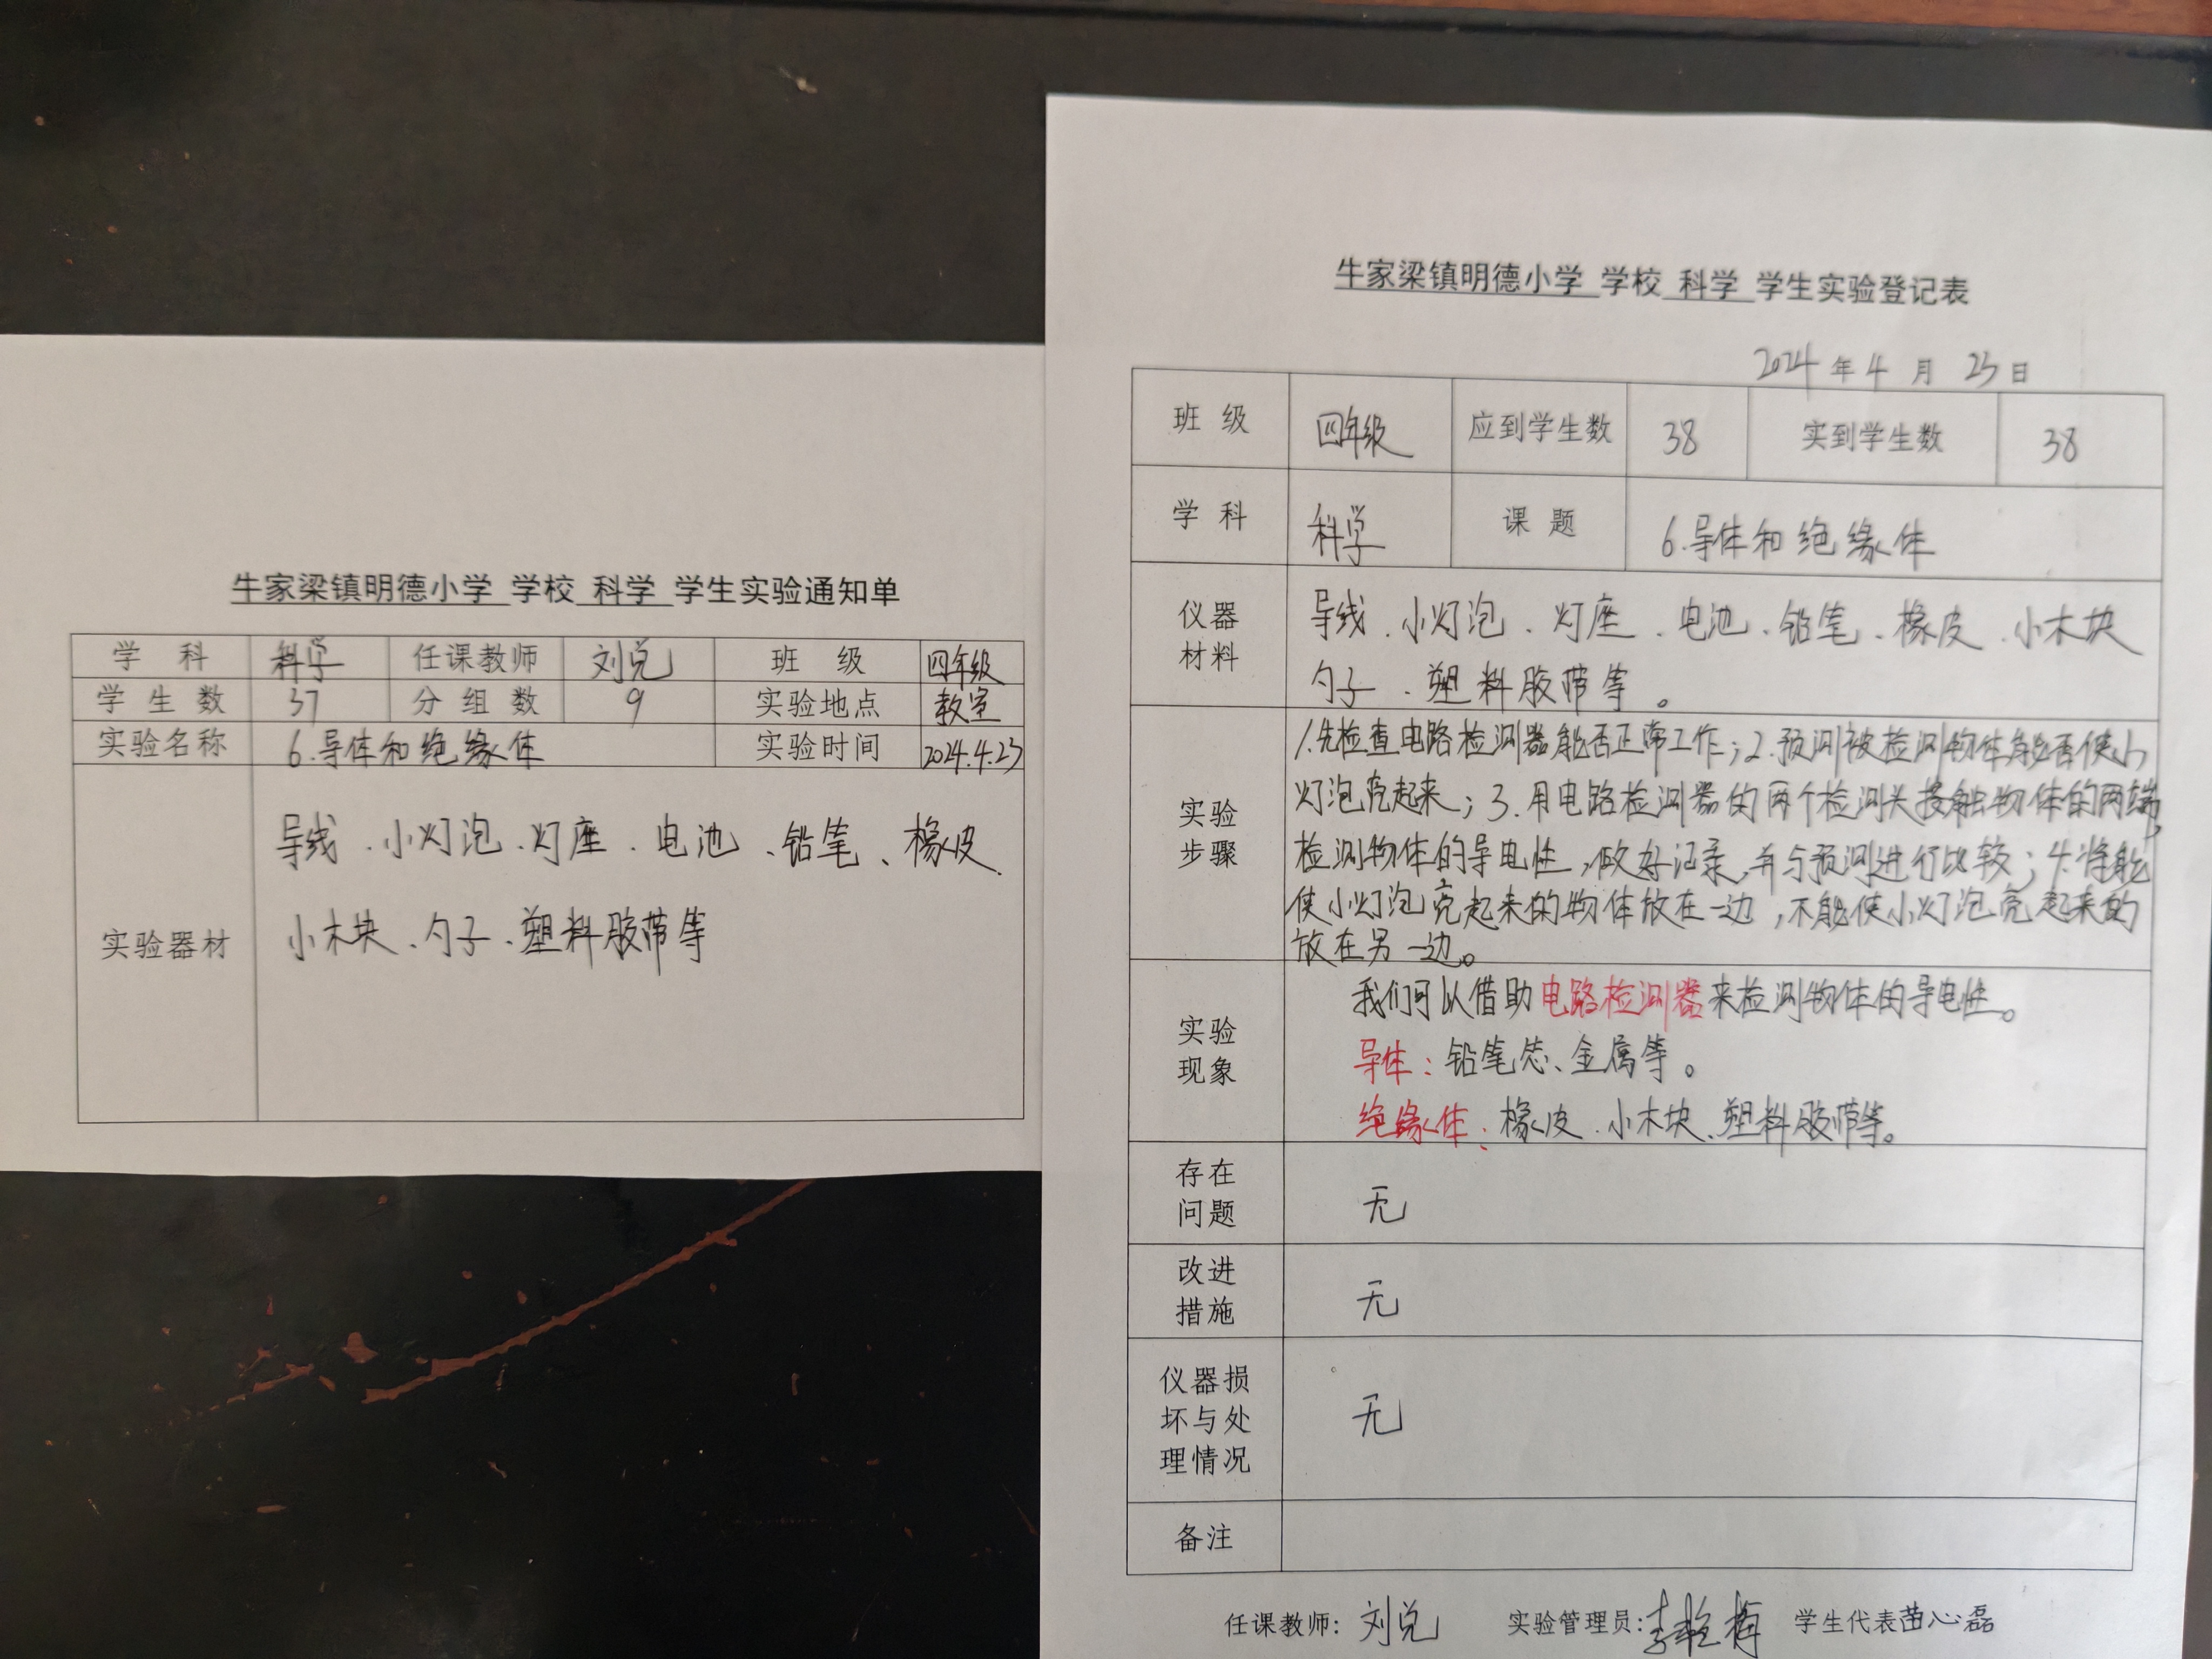 牛家梁镇明德小学 学校 科学 学生实验通知单
学 科 科学 任课教师 刘兑 班 级 四年级
学 生 数 37 分 组 数 9 实验地点 教室
实验名称 6.导体和绝缘体 实验时间 2024.4.23
实验器材
导线、小灯泡、灯座、电池、铅笔、橡皮、
小木块、勺子、塑料胶带等
牛家梁镇明德小学 学校 科学 学生实验登记表
2024 年 4 月 23 日
班 级 四年级 应到学生数 38 实到学生数 38
学 科 科学 课 题 6.导体和绝缘体
仪器
材料
导线、小灯泡、灯座、电池、铅笔、橡皮、小木块
勺子、塑料胶带等。
实验
步骤
1.先检查电路检测器能否正常工作;2.预测被检测物体能否使小
灯泡亮起来;3.用电路检测器的两个检测头接触物体的两端,
检测物体的导电性,做好记录,并与预测进行比较;4.将能
使小灯泡亮起来的物体放在一边,不能使小灯泡亮起来的
放在另一边。
实验
现象
我们可以借助电路检测器来检测物体的导电性。
导体:铅笔芯、金属等。
绝缘体:橡皮、小木块、塑料胶带等。
存在
问题
无
改进
措施
无
仪器损
坏与处
理情况
无
备注
任课教师: 刘兑 实验管理员: 李 梅 学生代表 苗心磊